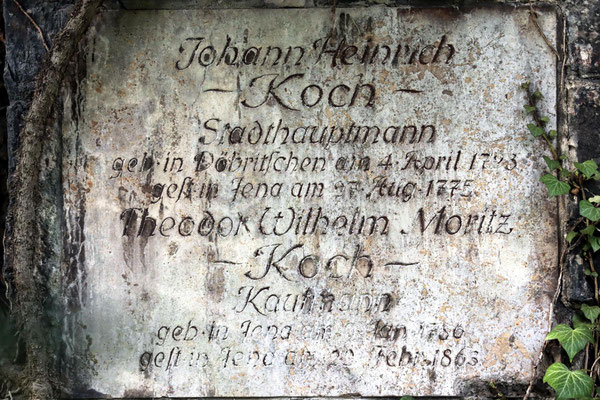 Johann Heinrich
– Koch –
Stadthauptmann
geb. in Döbritschen am 4. April 1723
gest. in Jena am 27. Aug. 1775
Theodor Wilhelm Moritz
– Koch –
Kaufmann
geb. in Jena am Jan.
gest. in Jena am Febr. 1863